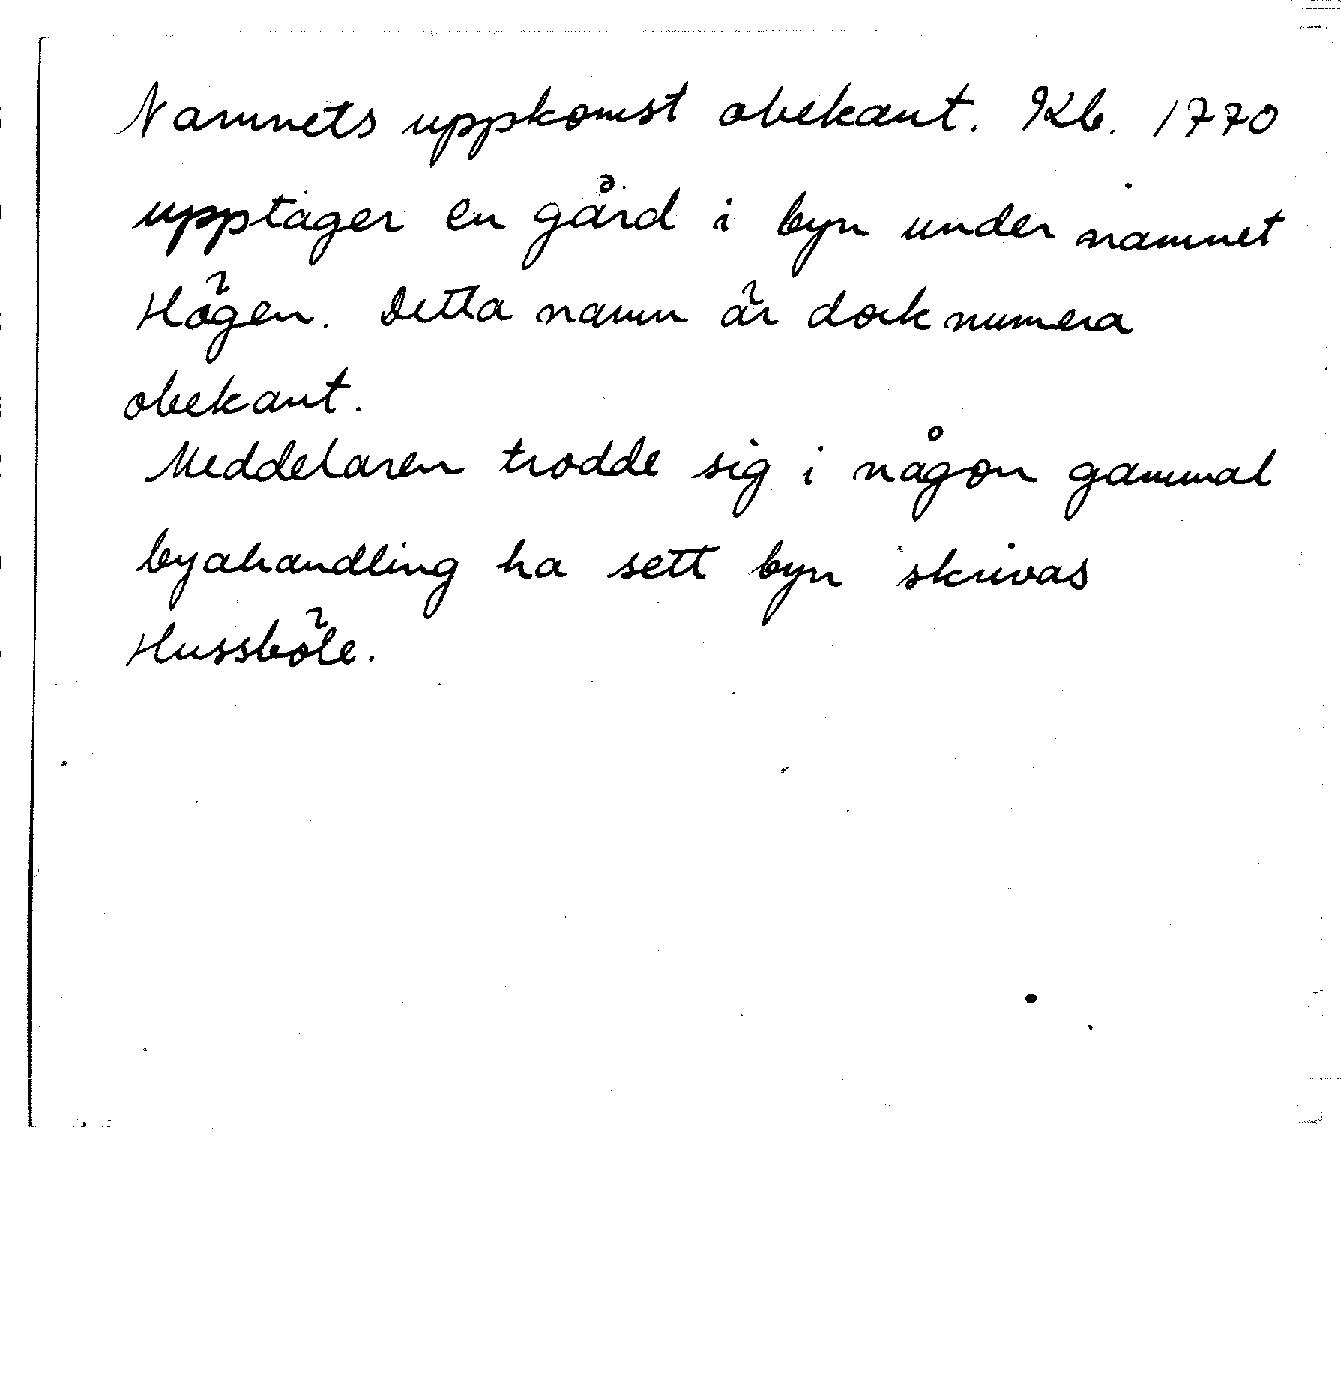 Namnets uppkomst obekant. Kb. 1770
upptager en gård i byn under namnet
Högen. Detta namn är dock numera
obekant.
Meddelaren trodde sig i någon gammal
byahandling ha sett byn skrivas
Hussböle.